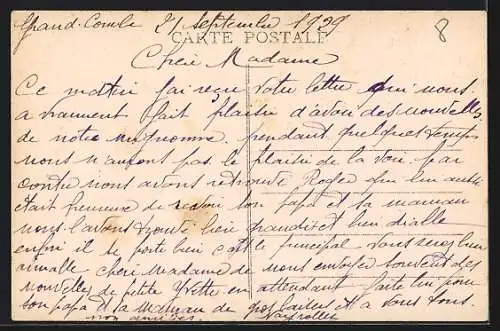 Grand-Combe 21 Septembre 1929
8
CARTE POSTALE
Chère Madame
Ce matin jai reçu votre lettre qui nous
a vraiment fait plaisir d'avoir des nouvelles
de notre mignonne. pendant quelques temps
nous n'aurons pas le plaisir de la voir, par
contre nous avons retrouvé Roger qui lui aussi
était heureux de revoir son papa et sa maman
nous l'avons trouvé bien grandit et bien
enfin il se porte bien c'est le principal Vous serez bien
aimable chère Madame de nous envoyer souvent des
nouvelles de petite Yvette en attendant faite lui pour
son papa et sa Maman de gros et a vous tous
nos amitiés.